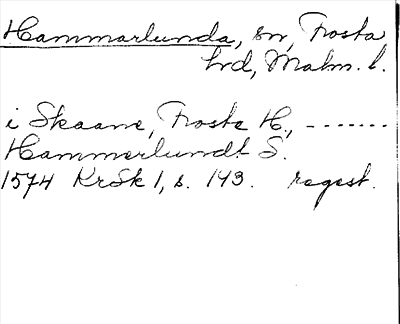 Hammarlunda, sn, Frosta
hrd, Malm. l.
i Skaane, Froste H., -------
Hammerlundt S.
1574 KrSk 1, s. 143. regest.